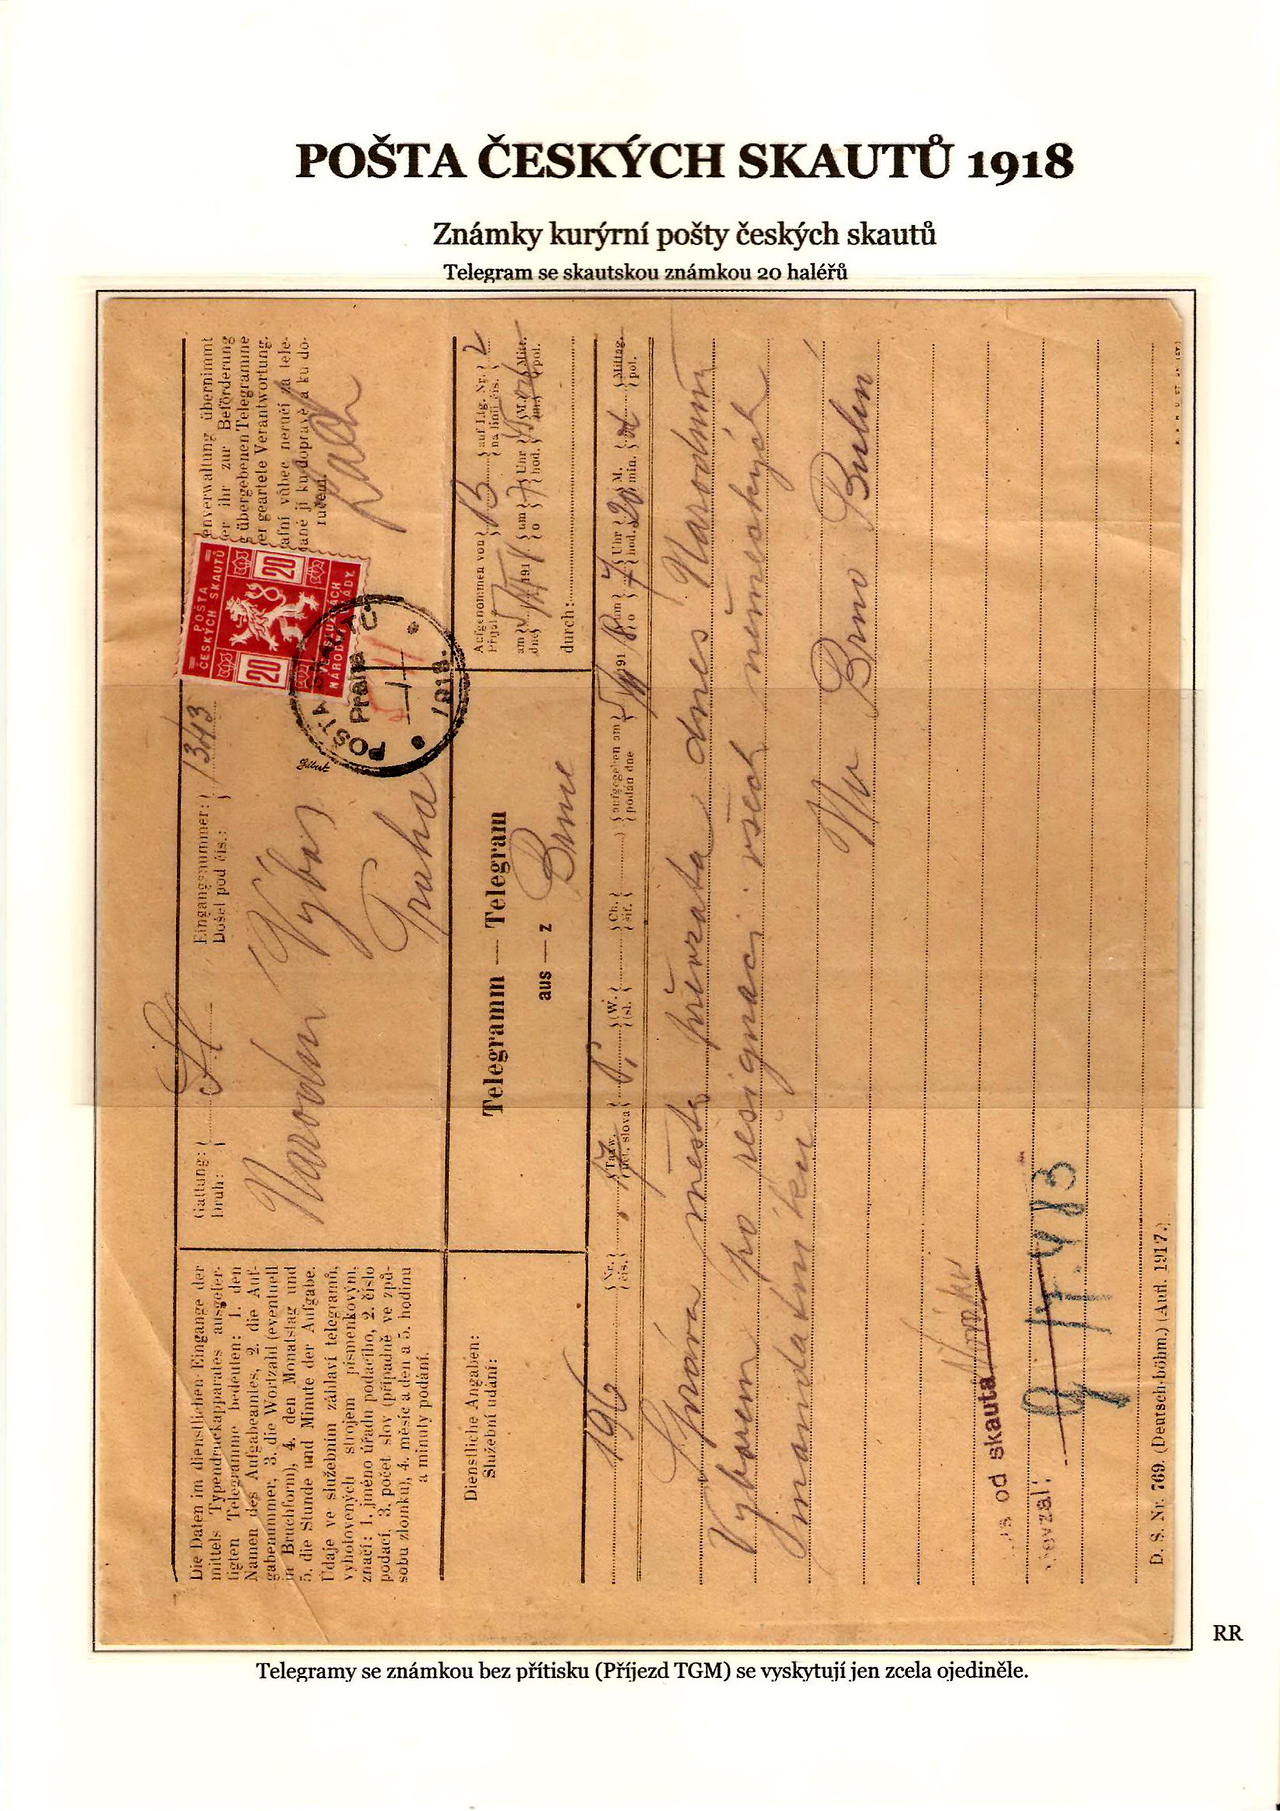 POŠTA ČESKÝCH SKAUTŮ 1918
Známky kurýrní pošty českých skautů
Telegram se skautskou známkou 20 haléřů
Die Daten im dienstlichen Eingange der
mittels Typendruckapparates ausgefer-
tigten Telegramme bedeuten: 1. den
Namen des Aufgabeamtes, 2. die Auf-
gabenummer, 3. die Wortzahl (eventuell
in Bruchform), 4. den Monatstag und
5. die Stunde und Minute der Aufgabe.
Údaje ve služebním záhlaví telegramů,
vyhotovených strojem písmenkovým,
značí: 1. jméno úřadu podacího, 2. číslo
podací, 3. počet slov (případně ve způ-
sobu zlomku), 4. měsíc a den a 5. hodinu
a minuty podání.
Gattung:
Druh:
Eingangsnummer: 1343
Došel pod čís.:
Narodni Vybor
Praha
enverwaltung übernimmt
er ihr zur Beförderung
g übergebenen Telegramme
er geartete Verantwortung.
afní vůbec neručí za tele-
ané jí ku dopravě a ku do-
ručení.
POŠTA
ČESKÝCH SKAUTŮ
20
20
VE SLUŽBÁCH
NÁRODNÍ VLÁDY
POŠTA SKAUTŮ
Praha
1918.
Gilbert
Dienstliche Angaben:
Služební údání:
Telegramm — Telegram
aus — z Brne
Aufgenommen von
Přijel
auf Ltg. Nr. 2
na linii čís.
am 191 um 7 Uhr M. Mitt.
dne o hod. min. pol.
durch:
196
Nr. Taxw. W. Ch. aufgegeben am 191 um 7 Uhr 20 M. Mittag.
čís. pol. slova sl. šif. podán dne o hod. min. pol.
Správa města převzata dnes Narodnim
Vyborem po resignaci všech německých
Nv Brno Bulin
od skauta
převzal:
D. S. Nr. 769. (Deutsch-böhm.) (Aufl. 1917.)
RR
Telegramy se známkou bez přítisku (Příjezd TGM) se vyskytují jen zcela ojediněle.